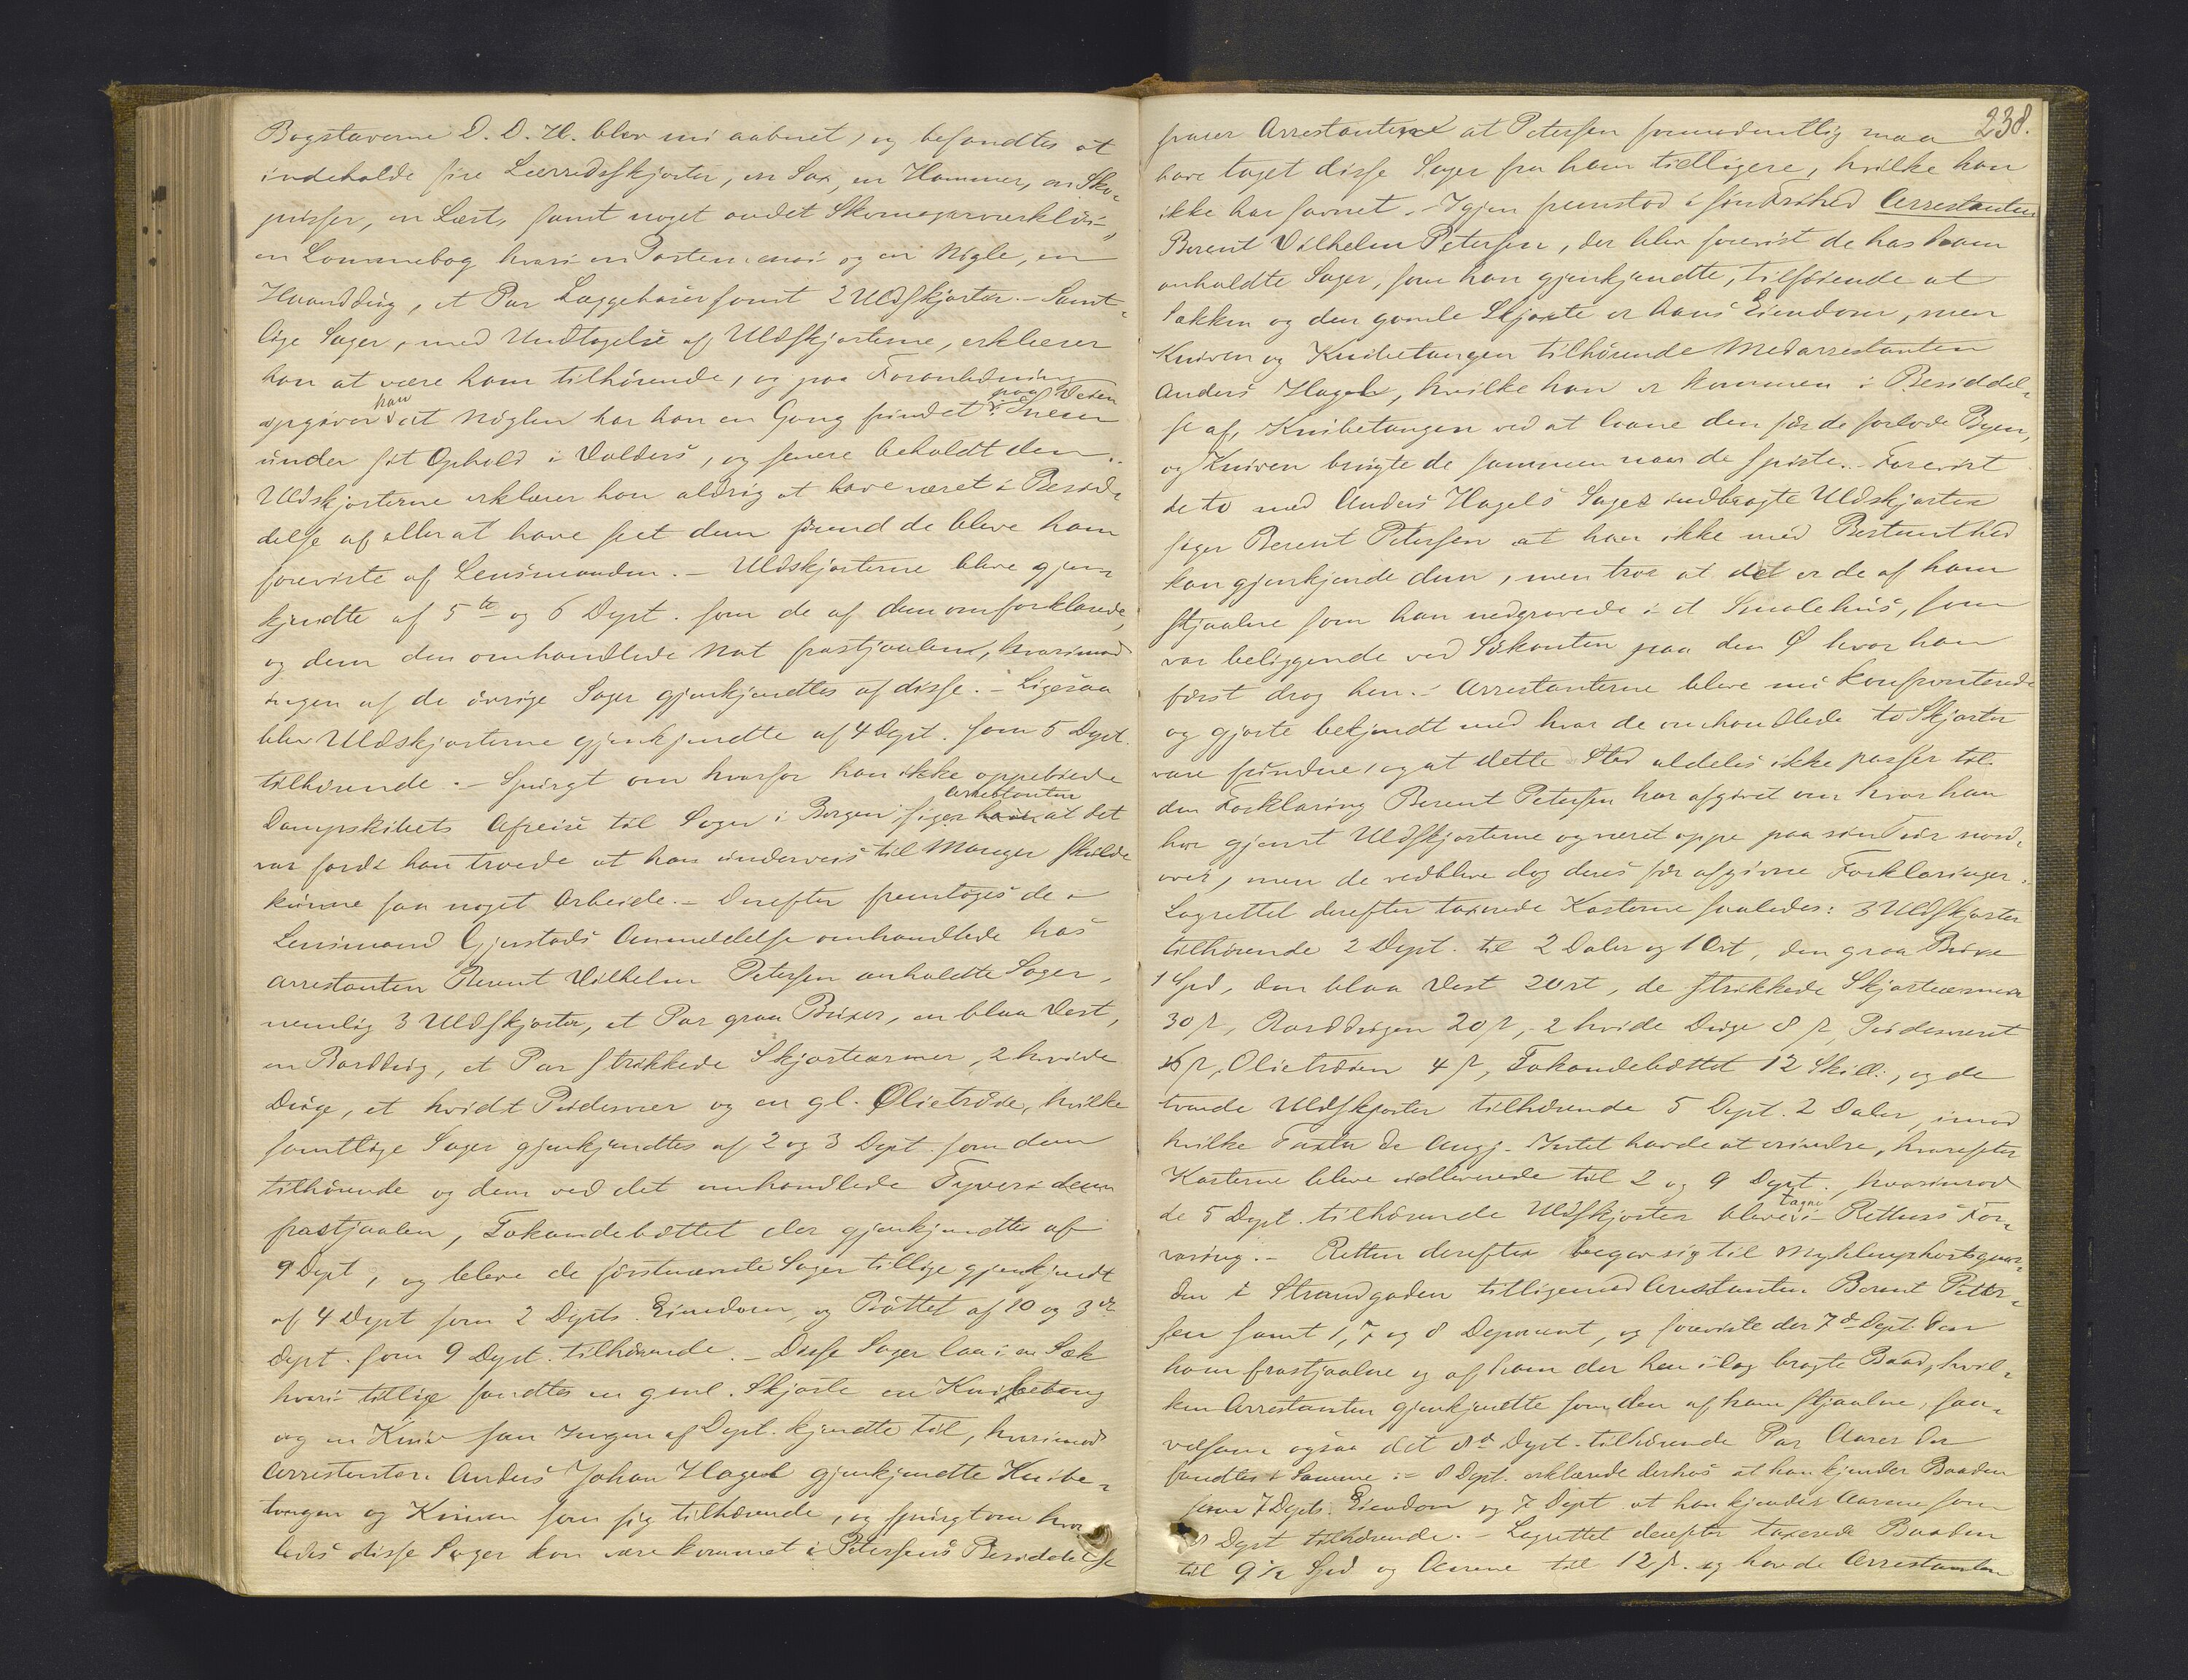 Bogstaverne D. D. H. blev nu aabnet, og befandtes at
indeholde fire Lærredsskjorter, en Sax, en Hammer, en Sko-
pudser, en Læst, samt noget andet Skomagerværktøi,
en Lommebog hvori en Portemonai og en Nøgle, en
Haanddug, et Par Læggehoser samt 2 Uldskjorter. – Samt-
lige Sager, med Undtagelse af Uldskjorterne, erklærer
han at være ham tilhørende, og paa Foranledning
opgiver han at Nøglen har han en Gang fundet paa Veien
under sit Ophold i Valders, og senere beholdt den.
Uldskjorterne erklærer han aldrig at have været i Besid-
delse af eller at have seet dem førend de bleve ham
foreviste af Lensmanden. – Uldskjorterne bleve gjen-
kjendte af 5te og 6 Dept. som de af dem omforklarede,
og dem den omhandlede Nat frastjaalene, hvorimod
ingen af de øvrige Sager gjenkjendtes af disse. – Ligesaa
blev Uldskjorterne gjenkjendte af 4 Dept. som 5 Dept.
tilhørende. – Spurgt om hvorfor han ikke oppebiede
Dampskibets Afreise til Sogn i Bergen, siger Arrestanten at det
var fordi han troede at han underveis til Manger skulde
kunne faa noget Arbeide. – Derefter fremtoges de i
Lensmand Gjerstads Anmeldelse omhandlede hos
Arrestanten Berent Vilhelm Petersen anholdte Sager,
nemlig 3 Uldskjorter, et Par graa Buxer, en blaa Vest,
en Borddug, et Par strikkede Skjorteærmer, 2 hvide
Duge, et hvidt Pudevær og en gl. Olietrøie, hvilke
samtlige Sager gjenkjendtes af 2 og 3 Dept. som dem
tilhørende og dem ved det omhandlede Tyveri dem
frastjaalen, Tokandebøttet der gjenkjendtes af
9 Dept, og bleve de førstnævnte Sager tillige gjenkjendt
af 4 Dept som 2 Depts. Eiendom, og Bøttet af 10 og 3die
Dept. som 9 Dept. tilhørende. – Disse Sager laa i en Sæk
hvori tillige fandtes en gml. Skjorte en Knibetang
og en Kniv som Ingen af Dept. kjendte til, hvorimod
Arrestanten Anders Johan Hagel gjenkjendte Knibe-
tangen og Kniven som sig tilhørende, og spurgt om hvor
ledes disse Sager kan være kommet i Petersens Besiddelse
238.
svarer Arrestanten at Petersen formodentlig maa
have taget disse Sager fra ham tidligere, hvilke han
ikke har savnet. – Igjen fremstod i sin Frihed Arrestanten
Berent Vilhelm Petersen, der blev forevist de hos ham
anholdte Sager, som han gjenkjendte, tilføiende at
Sækken og den gamle Skjorte er hans Eiendom, men
Kniven og Knibetangen tilhørende Medarrestanten
Anders Hagel, hvilke han er kommen i Besiddel-
se af, Knibetangen ved at laane den før de forlode Byen,
og Kniven brugte de sammen naar de spiste. – Forevist
de to med Anders Hagels Sager indbragte Uldskjorter
siger Berent Petersen at han ikke med Bestemthed
kan gjenkjende dem, men tror at det er de af ham
stjaalne som han nedgravede i et Smalehus, som
var beliggende ved Søkanten paa den Ø hvor han
først drog hen. – Arrestanterne bleve nu konfronterede
og gjorte bekjendt med hvor de omhandlede to Skjorter
vare fundne, og at dette Sted aldeles ikke passer til
den Forklaring Berent Petersen har afgivet om hvor han
har gjemt Uldskjorterne og været oppe paa sin Tour nord-
over, men de vedbleve dog deres før afgivne Forklaringer.
Lagrettet derefter taxerede Kosterne saaledes: 3 Uldskjorter
tilhørende 2 Dept. til 2 Daler og 1 Ort, den graa Buxe
1 Spd, den blaa Vest 2 Ort, de strikkede Skjorteærmer
30 ſ, Borddugen 20 ſ, 2 hvide Duge 8 ſ, Pudeværet
16 ſ, Olietrøien 4 ſ, Tokandebøttet 12 Skill:, og de
tvende Uldskjorter tilhørende 5 Dept. 2 Daler, imod
hvilke Taxter de Angj. Intet havde at erindre, hvorefter
Kosterne bleve udleverede til 2 og 9 Dept., hvorimod
de 5 Dept. tilhørende Uldskjorter bleve tagne i Rettens For-
varing. – Retten derefter begav sig til Myklenphortsgaar-
den i Strandgaden tilligemed Arrestanten Berent Peter-
sen samt 1, 7 og 8 Deponent, og foreviste der 7de Dept. den
ham frastjaalne og af ham der hen idag bragte Baad, hvil-
ken Arrestanten gjenkjendte som den af ham stjaalne, saa-
velsom ogsaa det 8de Dept. tilhørende Par Aarer der
fandtes i Samme: – 8 Dept. erklærede derhos at han kjender Baaden
som 7 Depts. Eiendom og 7 Dept at han kjender Aarene som
8 Dept tilhørende. – Lagrettet derefter taxerede Baaden
til 9½ Spd og Aarene til 12 ſ. og havde Arrestanten